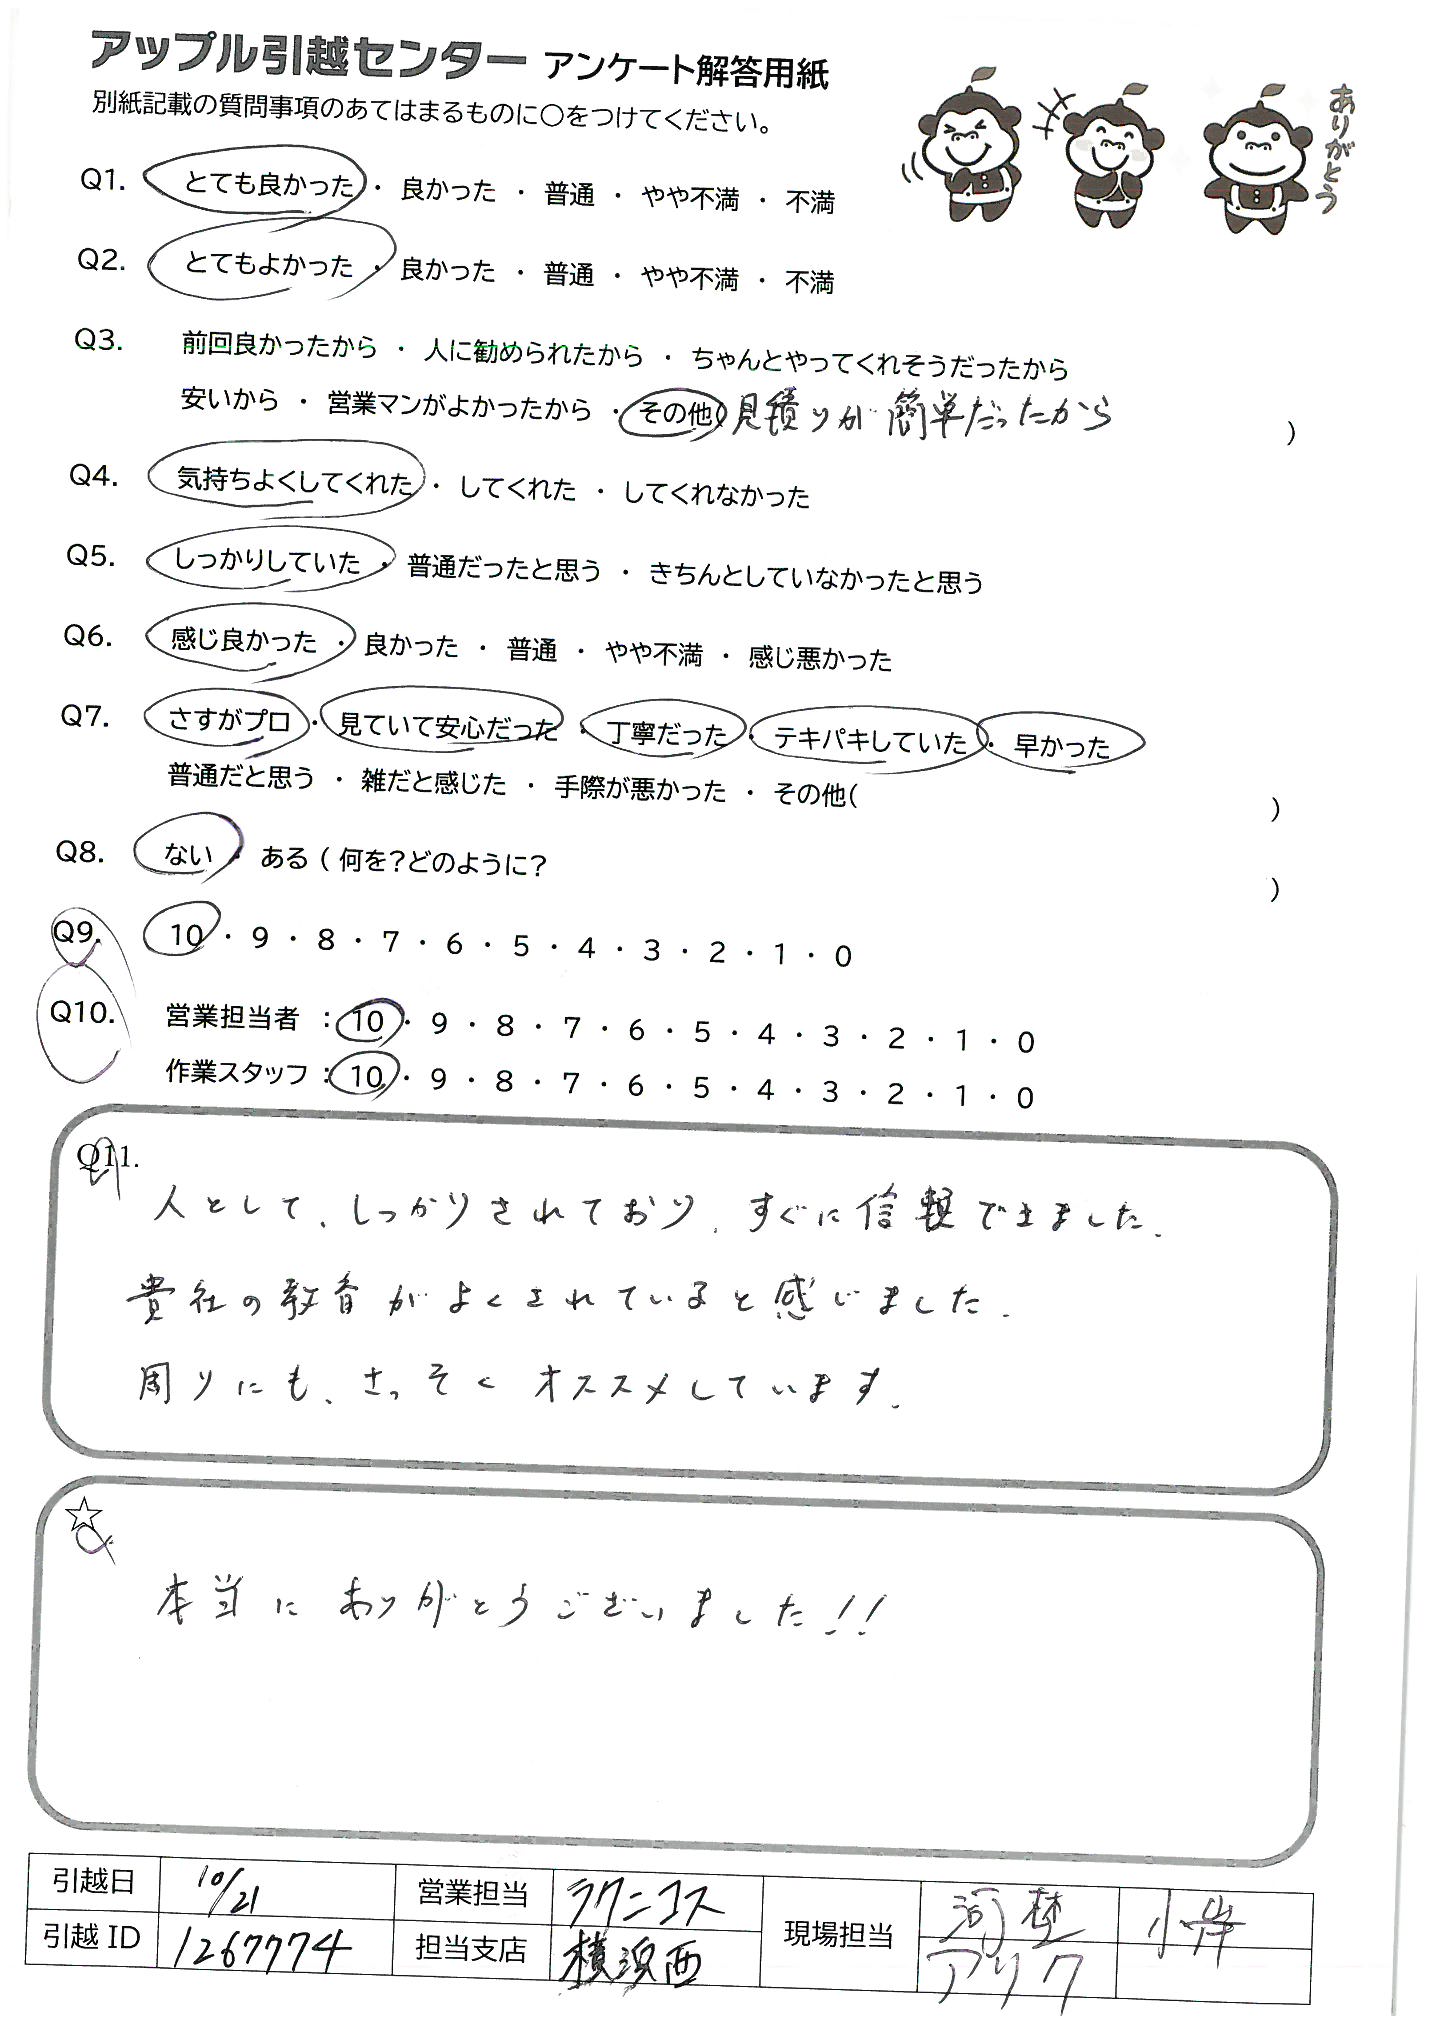 アップル引越センター アンケート解答用紙
別紙記載の質問事項のあてはまるものに〇をつけてください。
ありがとう
Q1. とても良かった ・ 良かった ・ 普通 ・ やや不満 ・ 不満
Q2. とてもよかった ・ 良かった ・ 普通 ・ やや不満 ・ 不満
Q3. 前回良かったから ・ 人に勧められたから ・ ちゃんとやってくれそうだったから
安いから ・ 営業マンがよかったから ・ その他( 見積りが簡単だったから )
Q4. 気持ちよくしてくれた ・ してくれた ・ してくれなかった
Q5. しっかりしていた ・ 普通だったと思う ・ きちんとしていなかったと思う
Q6. 感じ良かった ・ 良かった ・ 普通 ・ やや不満 ・ 感じ悪かった
Q7. さすがプロ ・ 見ていて安心だった ・ 丁寧だった ・ テキパキしていた ・ 早かった
普通だと思う ・ 雑だと感じた ・ 手際が悪かった ・ その他( )
Q8. ない ・ ある ( 何を?どのように? )
Q9. 10 ・ 9 ・ 8 ・ 7 ・ 6 ・ 5 ・ 4 ・ 3 ・ 2 ・ 1 ・ 0
Q10. 営業担当者 : 10 ・ 9 ・ 8 ・ 7 ・ 6 ・ 5 ・ 4 ・ 3 ・ 2 ・ 1 ・ 0
作業スタッフ : 10 ・ 9 ・ 8 ・ 7 ・ 6 ・ 5 ・ 4 ・ 3 ・ 2 ・ 1 ・ 0
Q11.
人として、しっかりされており、すぐに信頼できました。
貴社の教育がよくされていると感じました。
周りにも、さっそくオススメしています。
☆
本当にありがとうございました!!
引越日 10/21 営業担当 ラクニコス 現場担当 小岸
引越ID 1267774 担当支店 横浜西 アリク